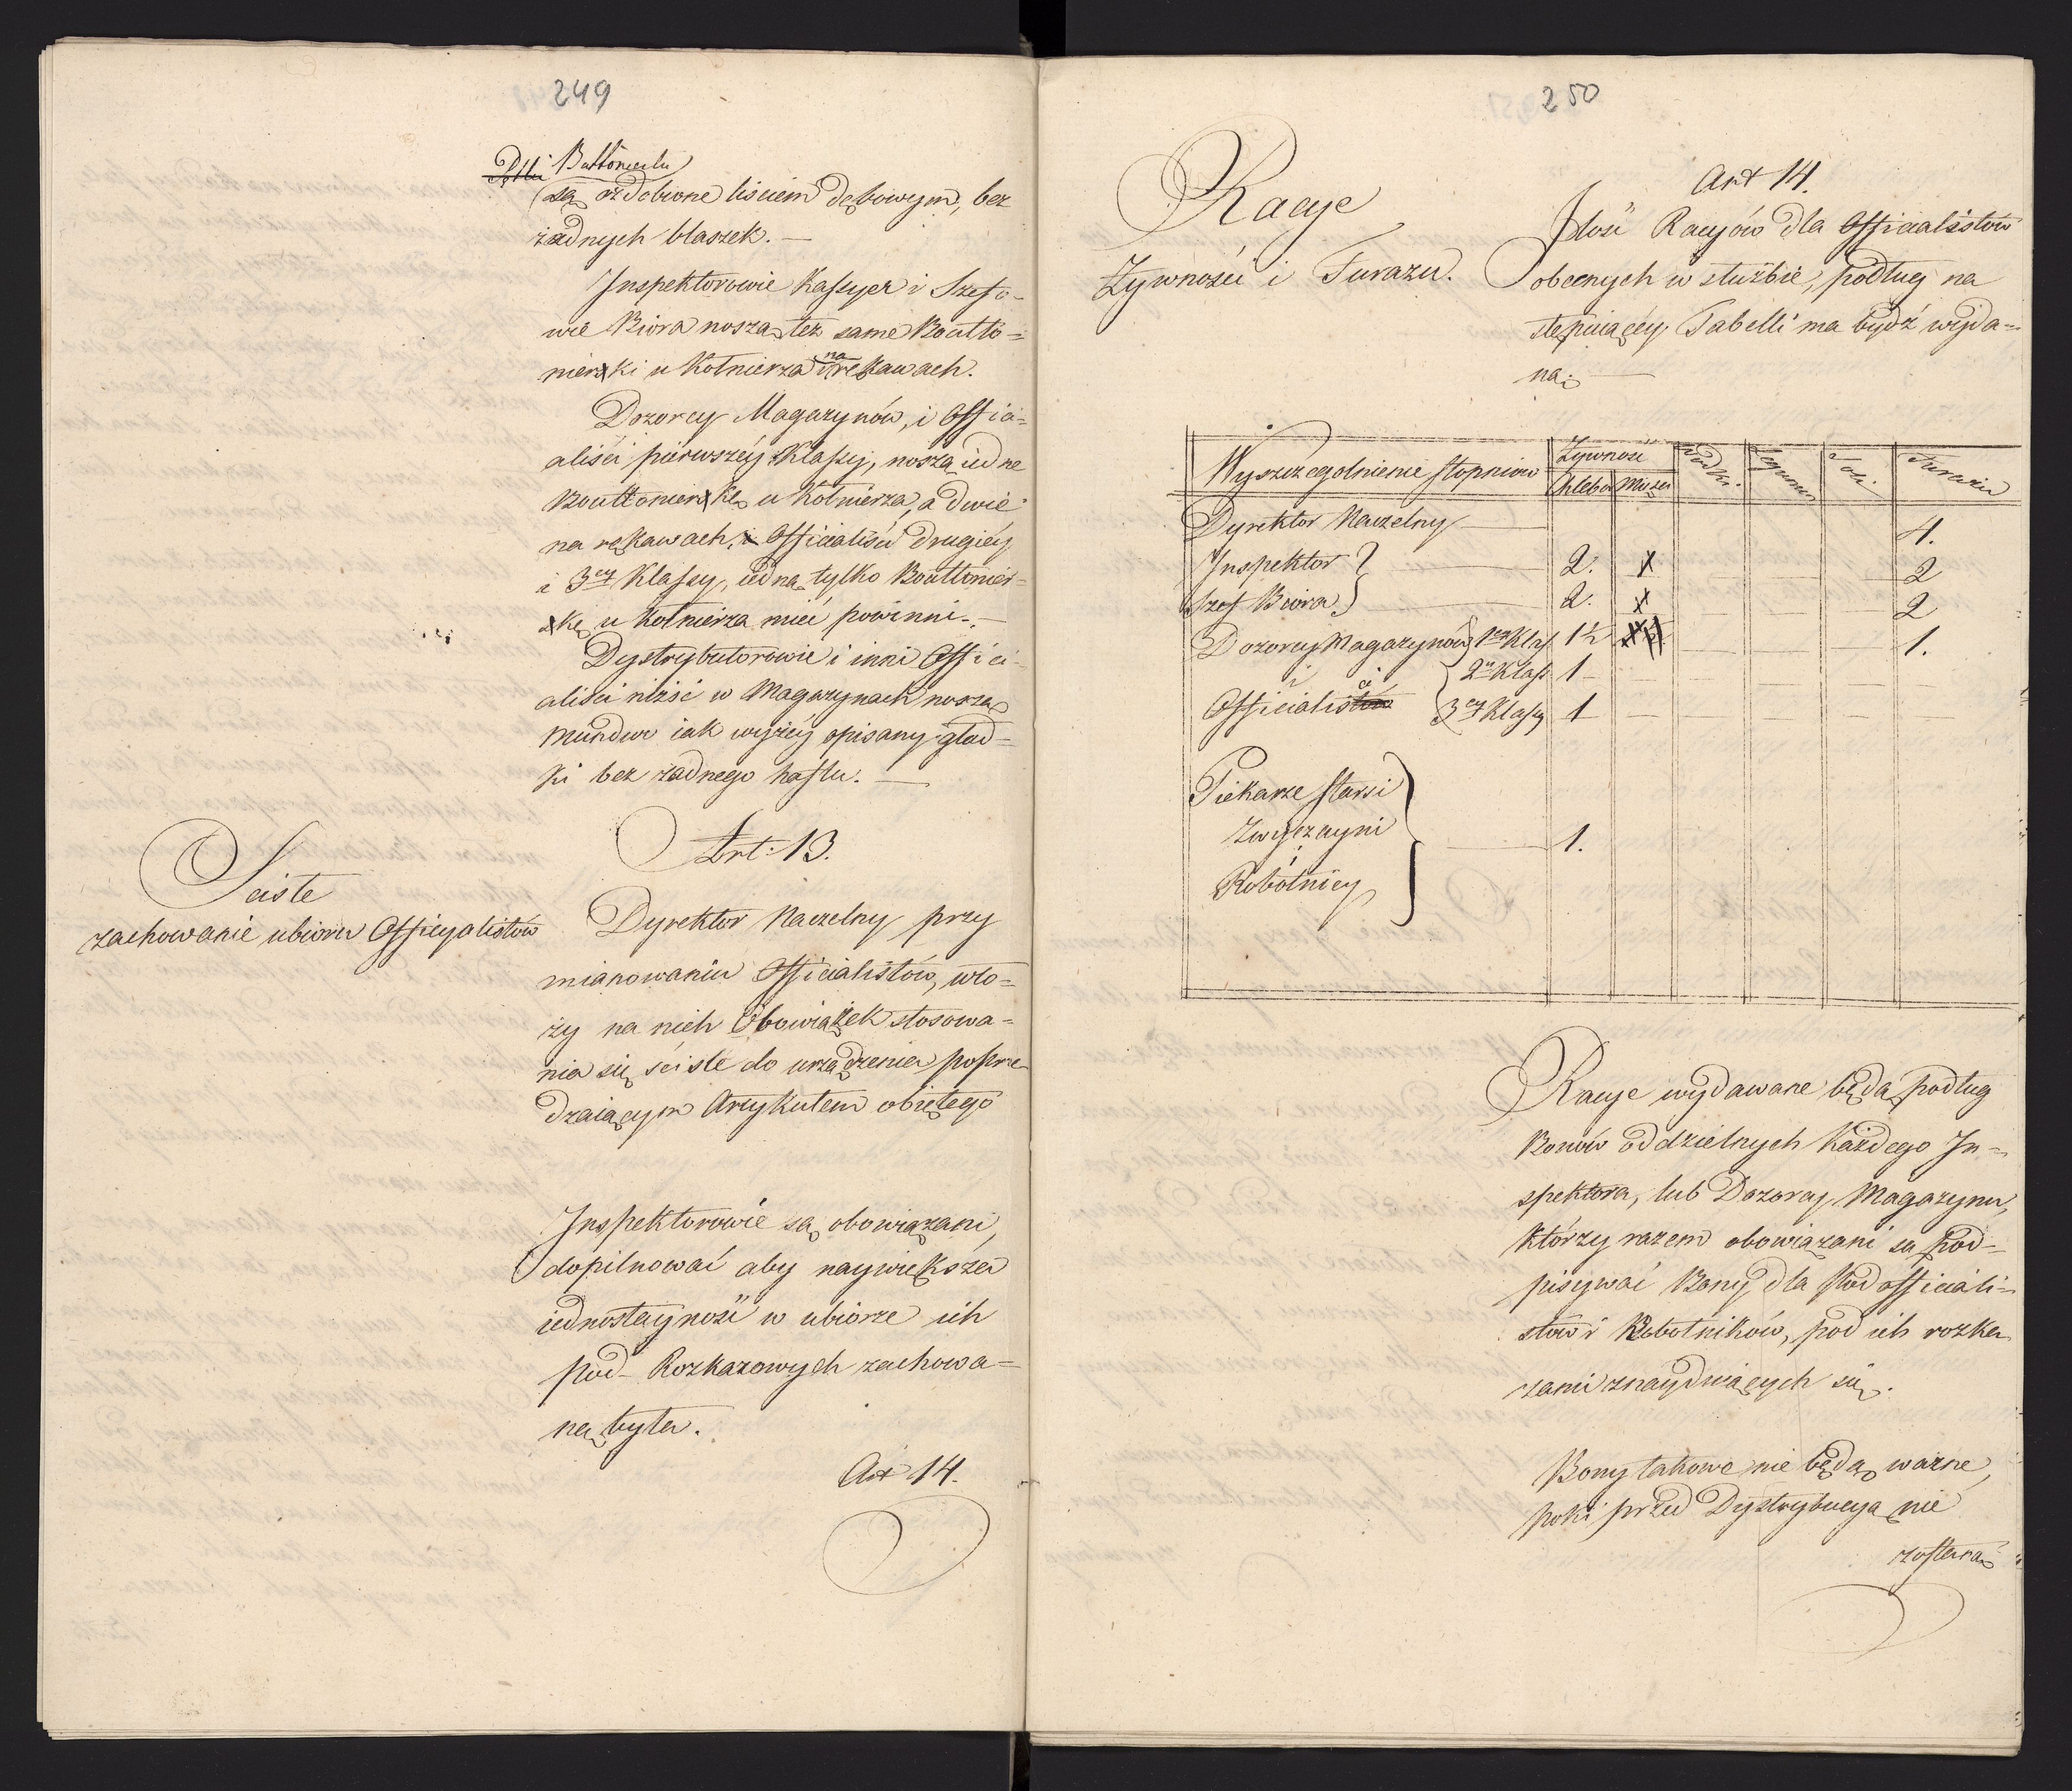 249
Buttonierki
są ozdobione liściem dębowym, bez
żadnych blaszek. —
Inspektorowie Kassyer i Szefo-
wie Biora noszą też same Boutto=
nierki u Kołnierza i na rękawach.
Dozorcy Magazynów, i Offici=
aliści pierwszéy Klassy, noszą iedne
Bouttonierkę u Kołnierza, a dwie
na rękawach, Officialiści drugiéy
i 3ey Klassy, iedną tylko Bouttonier-
kę u Kołnierza mieć powinni. —
Dystrybutorowie i inni Offici-
aliści niżsi w Magazynach noszą
Mundur iak wyżéy opisany glad=
ki bez żadnego haftu. —
Art: 13.
Sciste
zachowanie ubioru Officyalistów
Dyrektor Naczelny przy
mianowaniu Officialistów, wło=
ży na nich Obowiązek stosowa=
nia się ściśle do urządzenia poprze
dzaiącym Artykułem obiętego
Inspektorowie są obowiązani,
dopilnować aby naywiększa
iednostayność w ubiorze ich
pod-Rozkazowych zachowa=
ną była.
Art 14.
250
Racye
Żywności i Furazu.
Art 14.
Ilość Racyów dla Officialistów
obecnych w służbie, podług na
stępuiącéy Tabelli ma bydź wyda=
ną. —
Wyszczegolnienie stopniow Żywność Wódki. Legumin Soli. Furazu
Chleba Mięsa
Dyrektor Naczelny 4.
Inspektor 2. x 2
Szef Biora 2. x 2
Dozorcy Magazynów 1ey Klas 1½ 1.
i 2ey Klass 1
Officialiści 3ey Klassy 1
Piekarze starsi
Zwyczayni 1.
Robotnicy
Racye wydawane będą podług
Bonów oddzielnych Każdego In=
spektora, lub Dozorcy Magazynu,
którzy razem obowiązani są pod=
pisywać Bony dla pod officiali=
stów i Robotników, pod ich rozka
zami znayduiących się.
Bony takowe nie będą ważne,
poki przed Dystrybucyą nie
zostaną